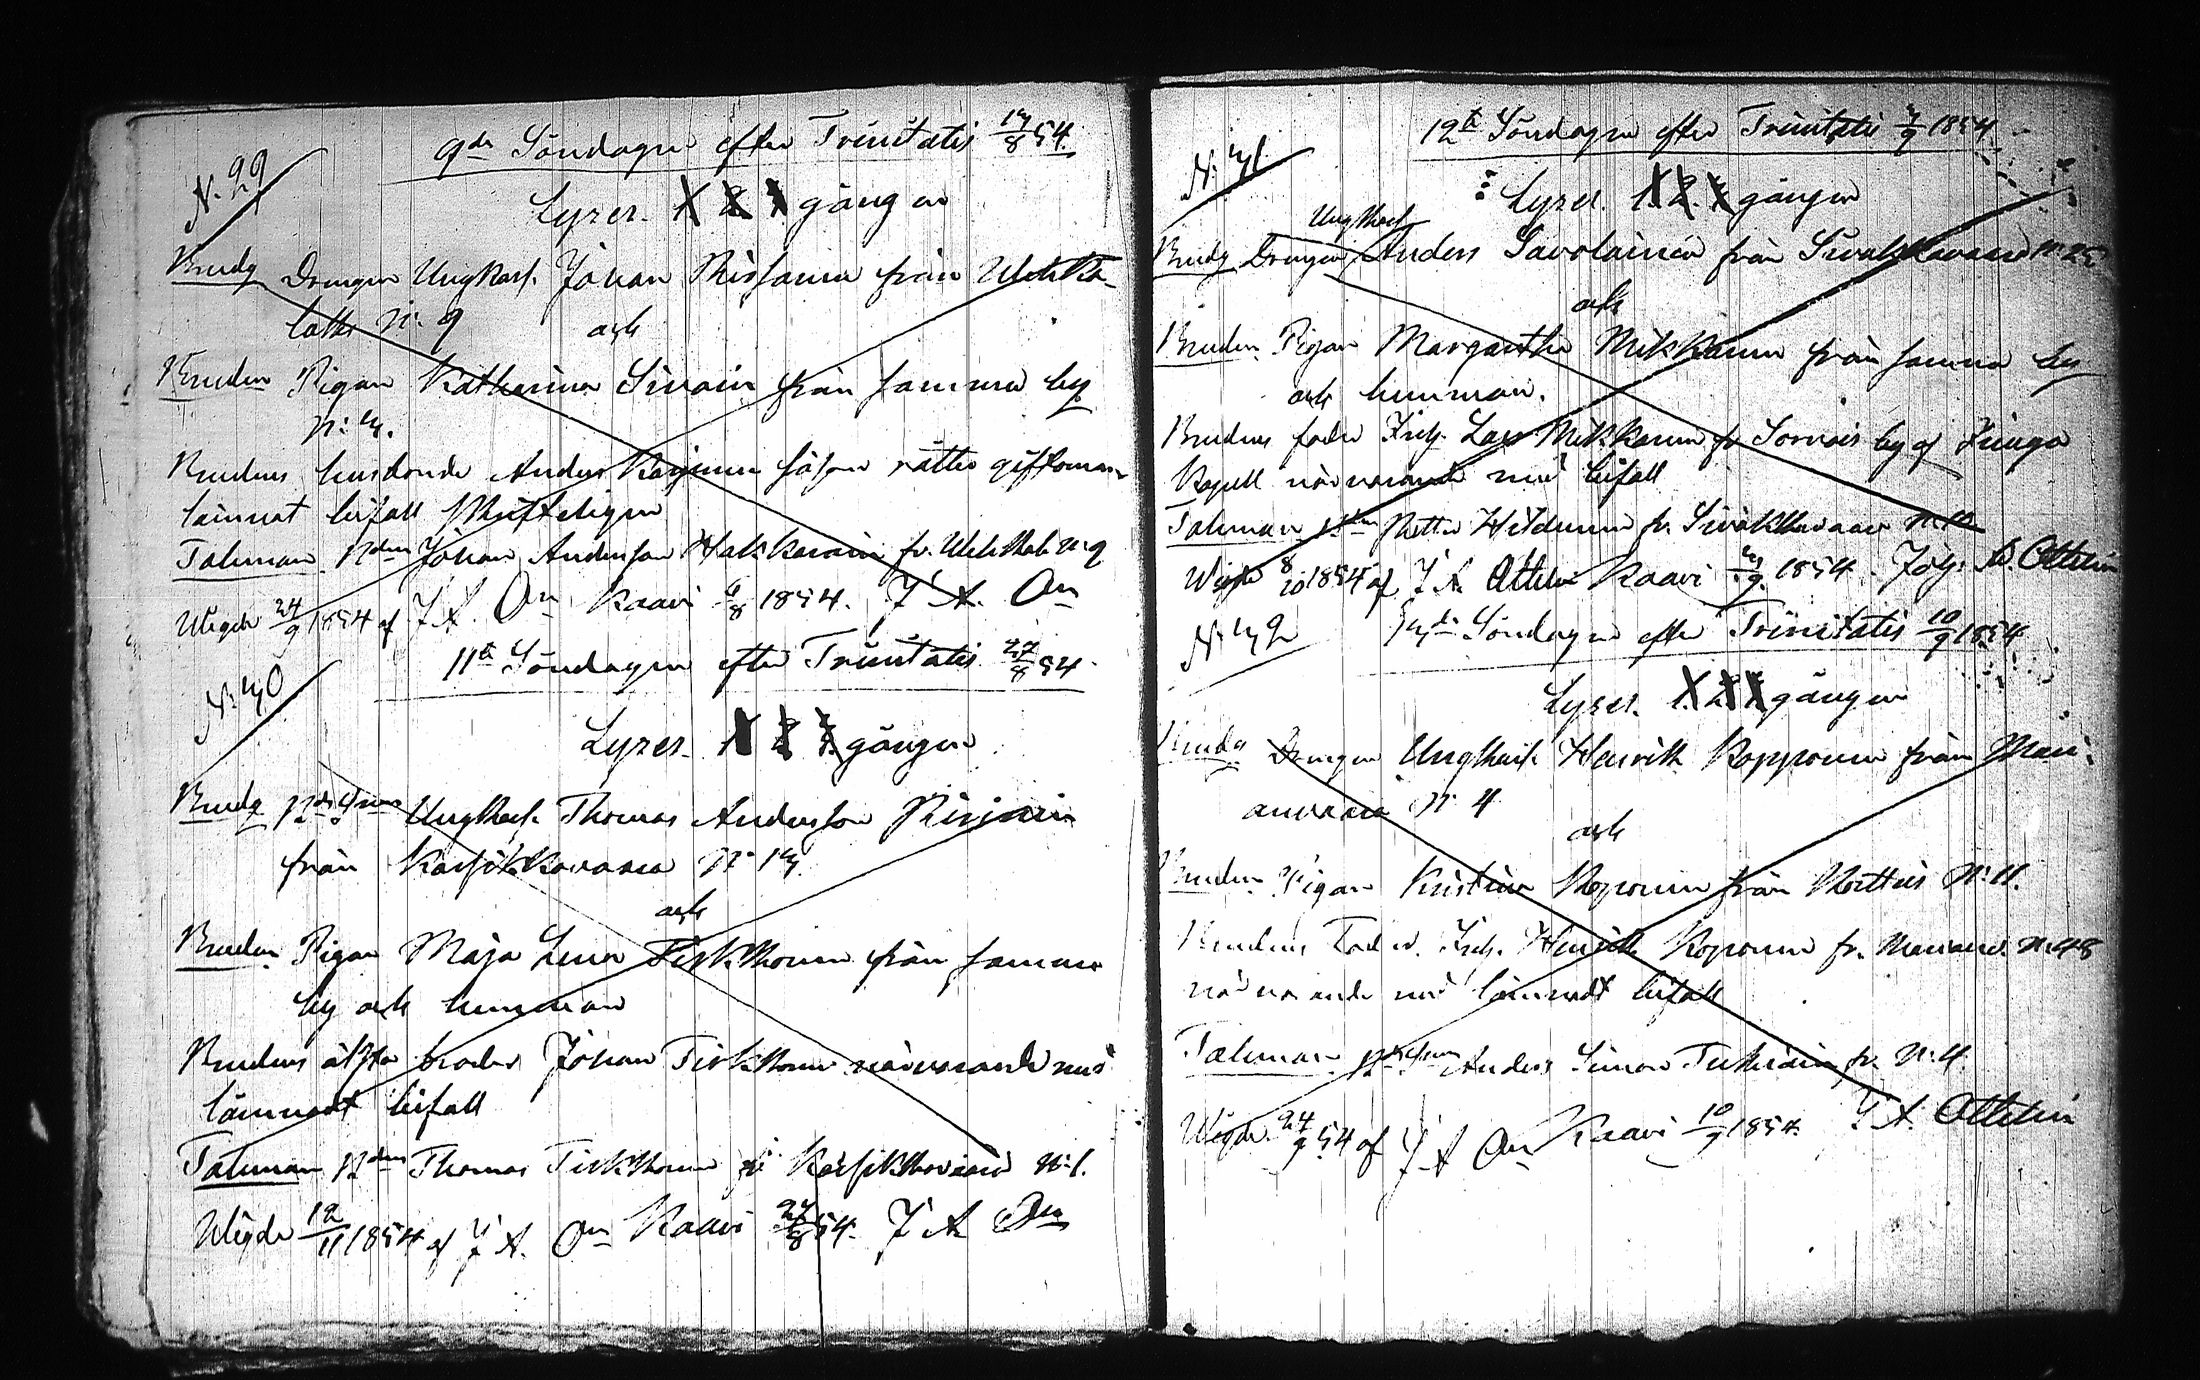 N. 39
9de Söndagen efter Trinitatis 13/8 54.
Lyses 1 2 3 gången
Brudg Drengen Ungkarl. Johan Rissanen från Wehka-
lathi N: 9 och
Bruden Pigan Katharina Sivoin från samma by
N: 3.
Brudens husbonde Anders såsom rätter giftoman
lämnat bifall skrifteligen
Talman Bdn Johan Andersson Hakkarain fr. Wehkal. N: 9
Wigde 24/9 1854 af J A. On Kaavi 6/8 1854. J A. On
N: 40
11te Söndagen efter Trinitatis 27/8 54.
Lyses 1 2 3 gången
Brudg Ungkarl. Thomas Andersson
från Kärsikkovaara N: 13
och
Bruden Pigan Maja Lena Tirkkonen från samma
by och nummer
Brudens älsta broder Johan Tirkkonen närvarande med
lämnadt bifall
Talman Bdn Thomas Tirkkonen fr Kärsikkovaara N: 1.
Wigde 12/11 1854 af J A. On Kaavi 27/8 54. J A On
N: 41
12te Söndagen efter Trinitatis 3/9 1854
Lyses 1. 2. 3 gången
Ungkarl
Brudg Drengen Anders Savolainen från Sivakkavaara N: 25
och
Bruden Pigan Margaretha Mikkonen från samma by
och nummer.
Brudens fader Lars Mikkonen fr by af Juuga
Kapell närvarande med bifall
Talman Petter Hildunen fr. Sivakkavaara
Wigde 8/10 1854 af J A. Ottelin Kaavi 3/9 1854. Joh. A Ottelin
N: 42
13de Söndagen efter Trinitatis 10/9 1854
Lyses 1. 2 3 gången
Brudg Drengen Ungkarl. Henrik Kopponen från Mari-
anvaara N: 4
och
Bruden Pigan Kristina Koponen från N: 11.
Brudens Fader. Henrik Koponen fr. Marianv. N: 48
närvarande med lämnadt bifall
Talman Anders Simon fr. N: 4.
Wigde 24/9 54 af J A On Kaavi 10/9 1854. J. A. Ottelin